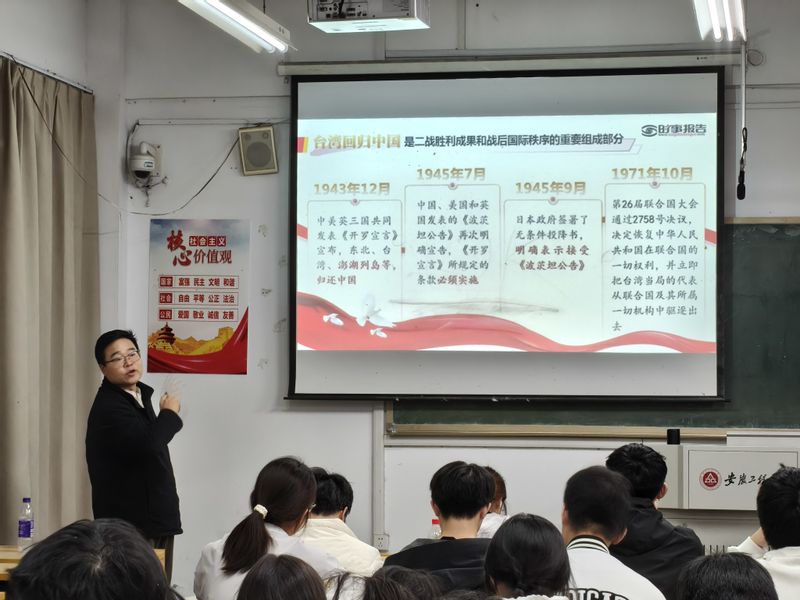 台湾回归中国 是二战胜利成果和战后国际秩序的重要组成部分
时事报告
1943年12月
中美英三国共同
发表《开罗宣言》
宣布,东北、台
湾、澎湖列岛等,
归还中国
1945年7月
中国、美国和英
国发表的《波茨
坦公告》再次明
确宣告,《开罗
宣言》所规定的
条款必须实施
1945年9月
日本政府签署了
无条件投降书,
明确表示接受
《波茨坦公告》
1971年10月
第26届联合国大会
通过2758号决议,
决定恢复中华人民
共和国在联合国的
一切权利,并立即
把台湾当局的代表
从联合国及其所属
一切机构中驱逐出
去
社会主义
核心价值观
国家 富强 民主 文明 和谐
社会 自由 平等 公正 法治
公民 爱国 敬业 诚信 友善
安徽工程